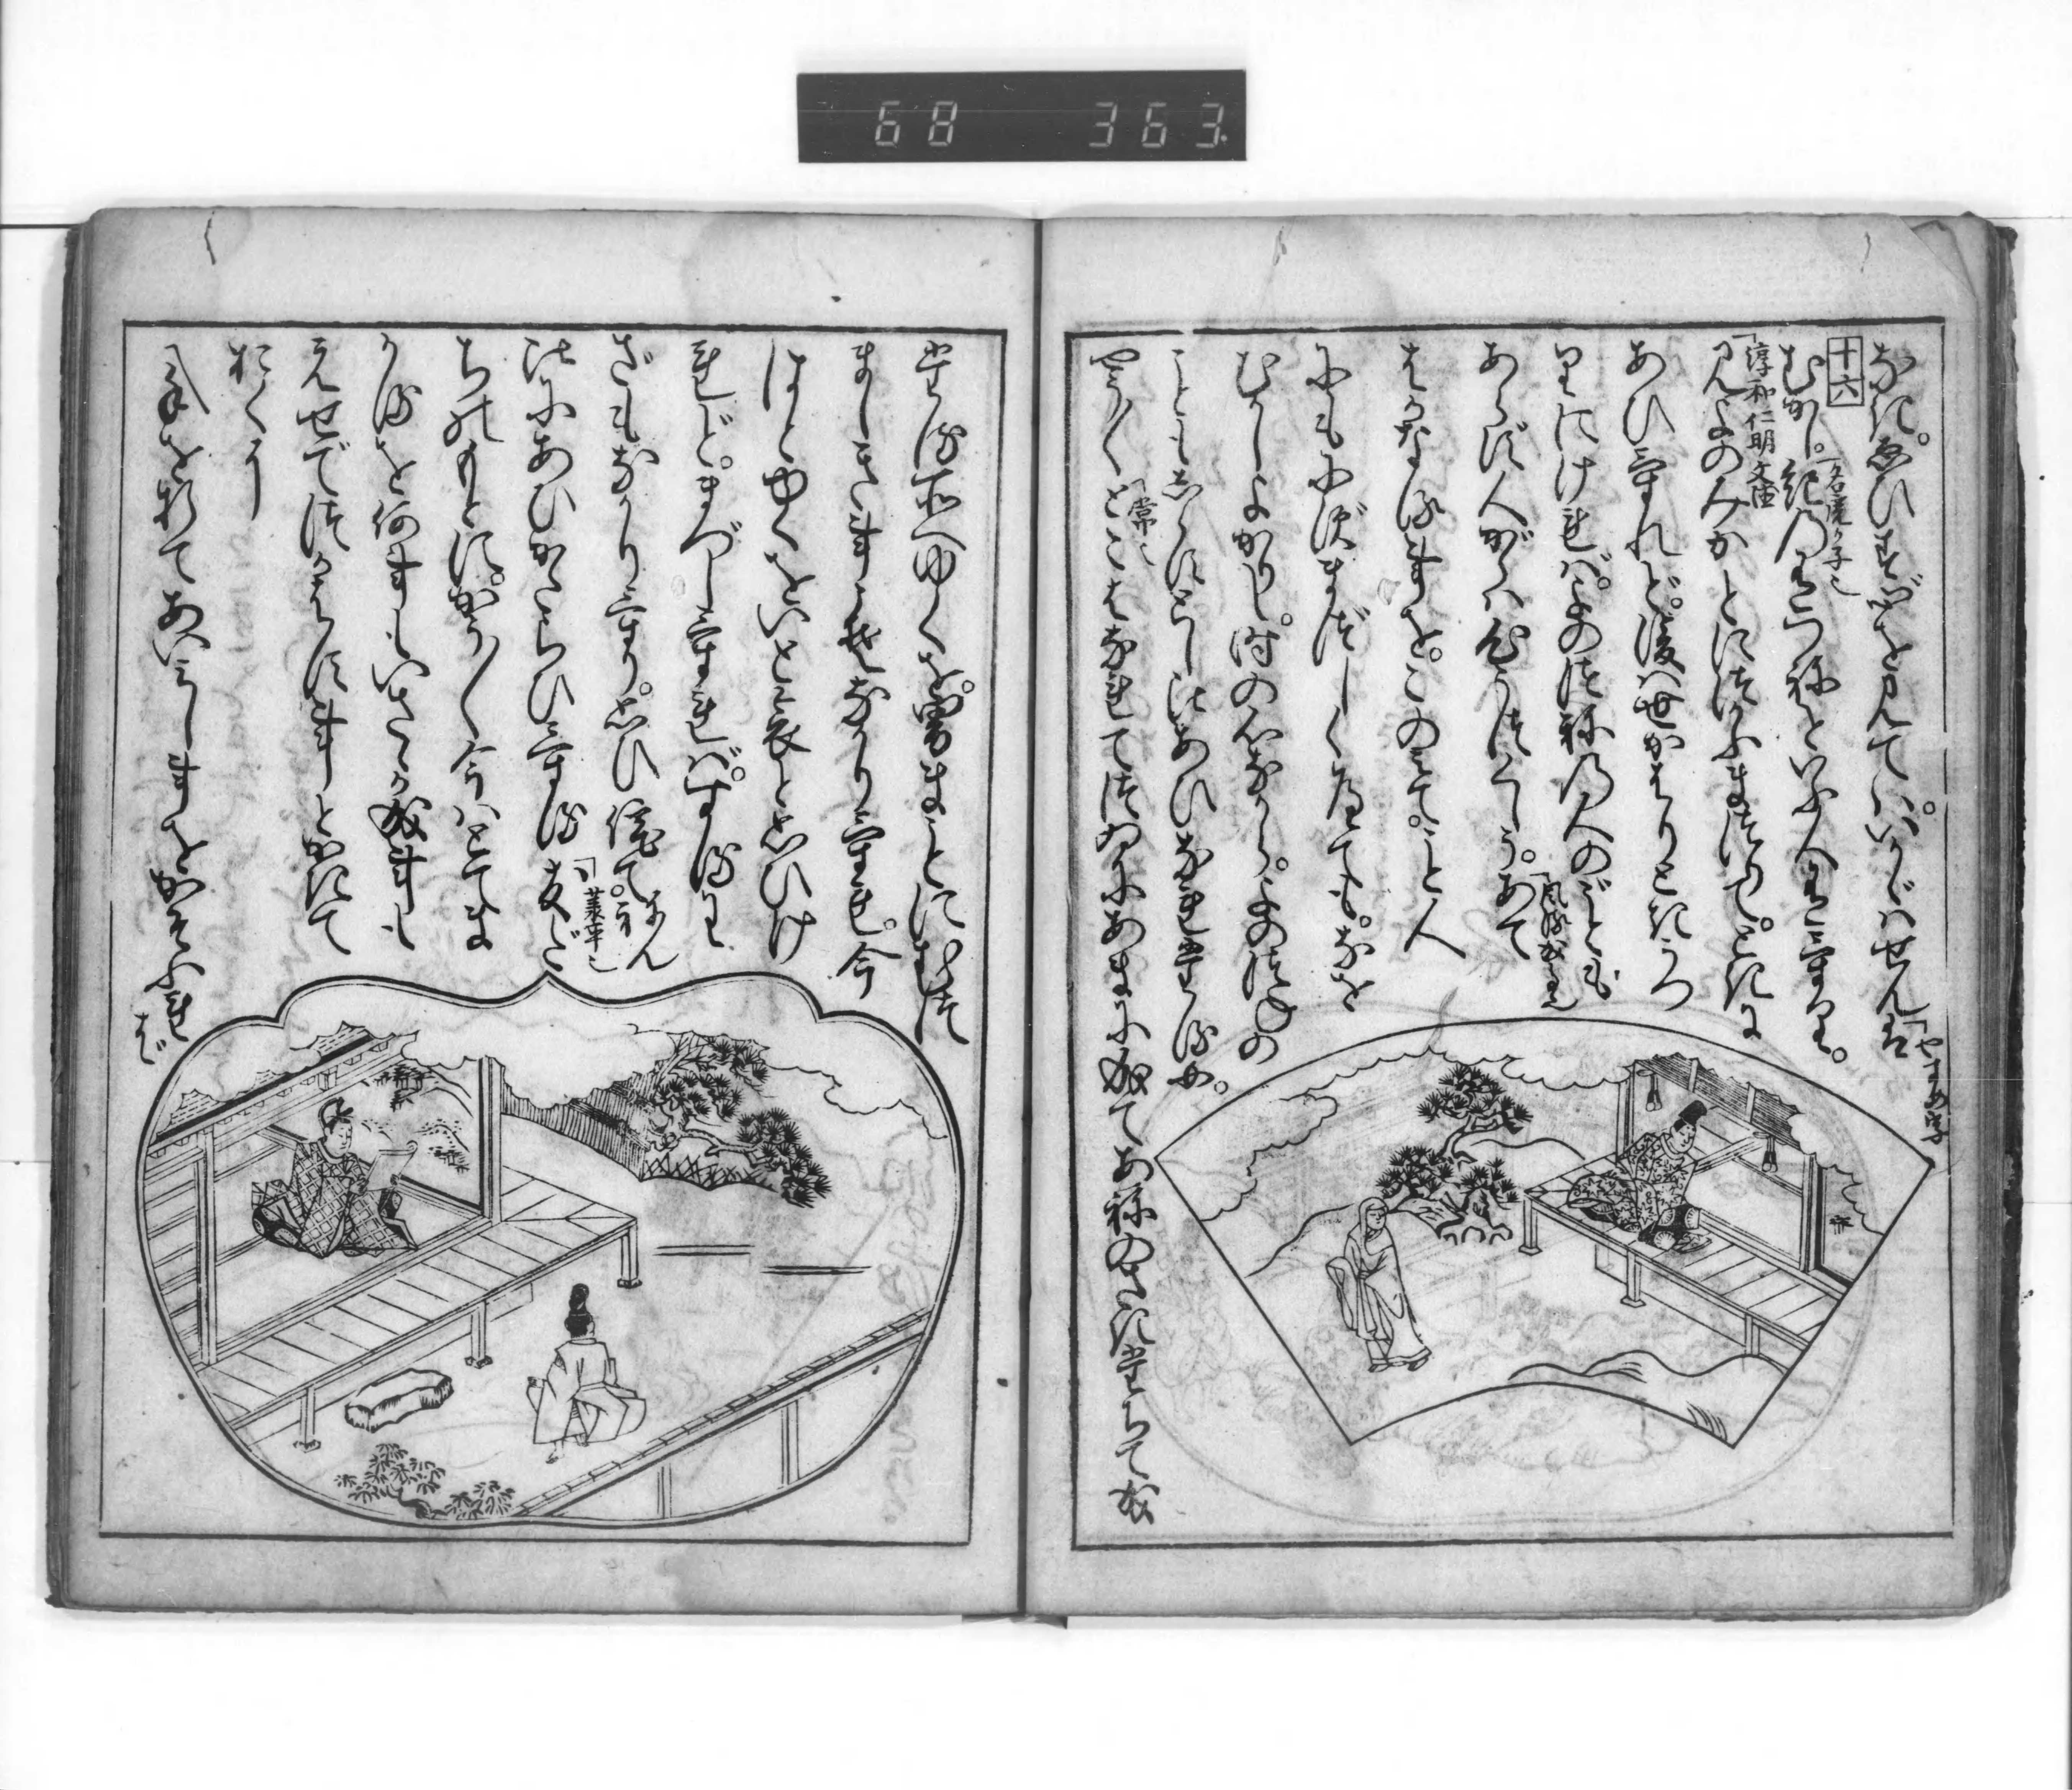 68 363
なき。ゑびすごゝろを見ては。いかゞはせんは
「やすめ字
十六
むかし。紀のありつねといふ人有けり。
「名虎ノ子也
「淳和仁明文徳
見よのみかどにつかふまつりて。ときに
あひけれど。後は世かはりときうつ
りにければ。よのつねの人のごとも
あらず。人がらは心うつくしう。あて
はかなることを。このみて。こと人
にもにずまづしくへても。なを
むかしよかりし。時の心ながら。よのつねの
こともしらず。としごろあひなれたるめ。
やう〳〵とこはなれてつゐにあまに成てあねのさきだちて成
「常也
たる所へゆくを。男まことにむつ
ましきことこそなかりけれ。今
はとゆくをいとあはれと思ひけ
れど。まづしければ。するわ
ざもなかりけり。思ひ侘てねん
ごろにあひかたらひける友だ
「業平也
ちのもとに。かう〳〵今はとてま
かるを何事もいさゝか成事も
えせでつかはす事とかきて
おくに
手を折てあひ見し事をかぞふれば